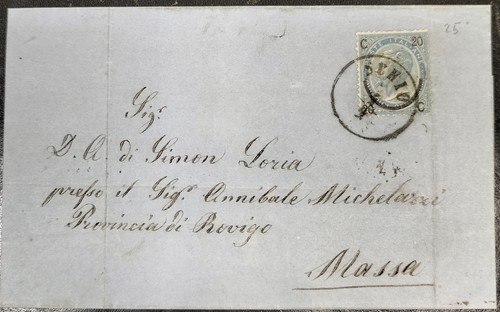 25
C 20
C
Sigr.
D. A. di Simon Loria
presso il Sigr. Annibale Michelazzi
Provincia di Rovigo
Massa